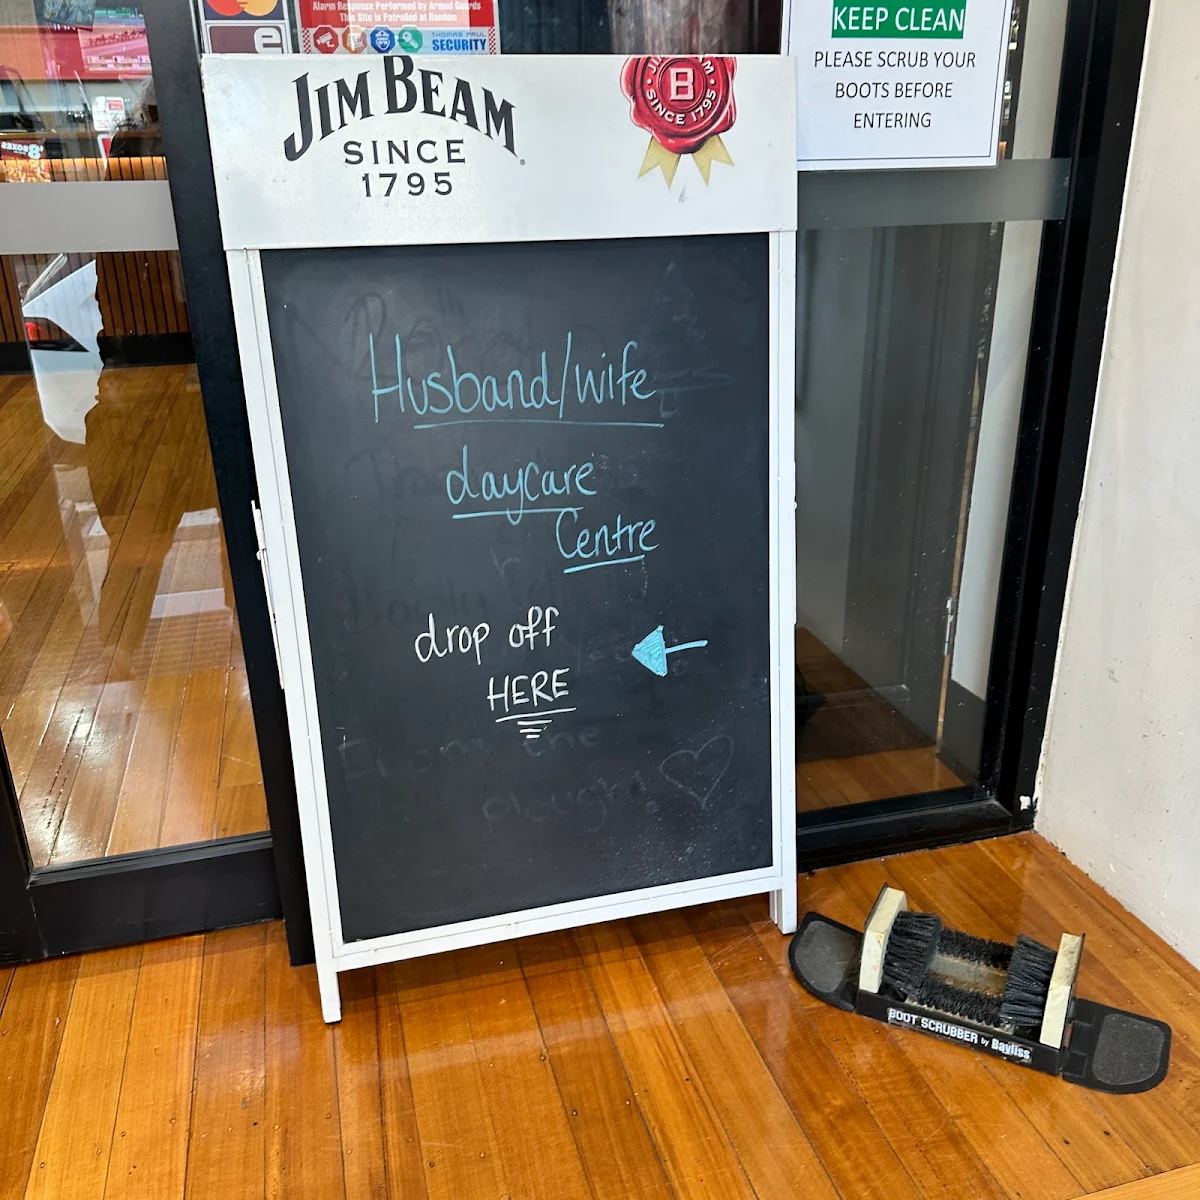 Alarm Response Performed by Armed Guards
This Site is Patrolled at Random
THOMAS PAUL
SECURITY
KEEP CLEAN
PLEASE SCRUB YOUR
BOOTS BEFORE
ENTERING
JIM BEAM
SINCE
1795
B
SINCE 1795
Husband/wife
daycare
Centre
drop off
HERE
From the
plough!
BOOT SCRUBBER by Bayliss